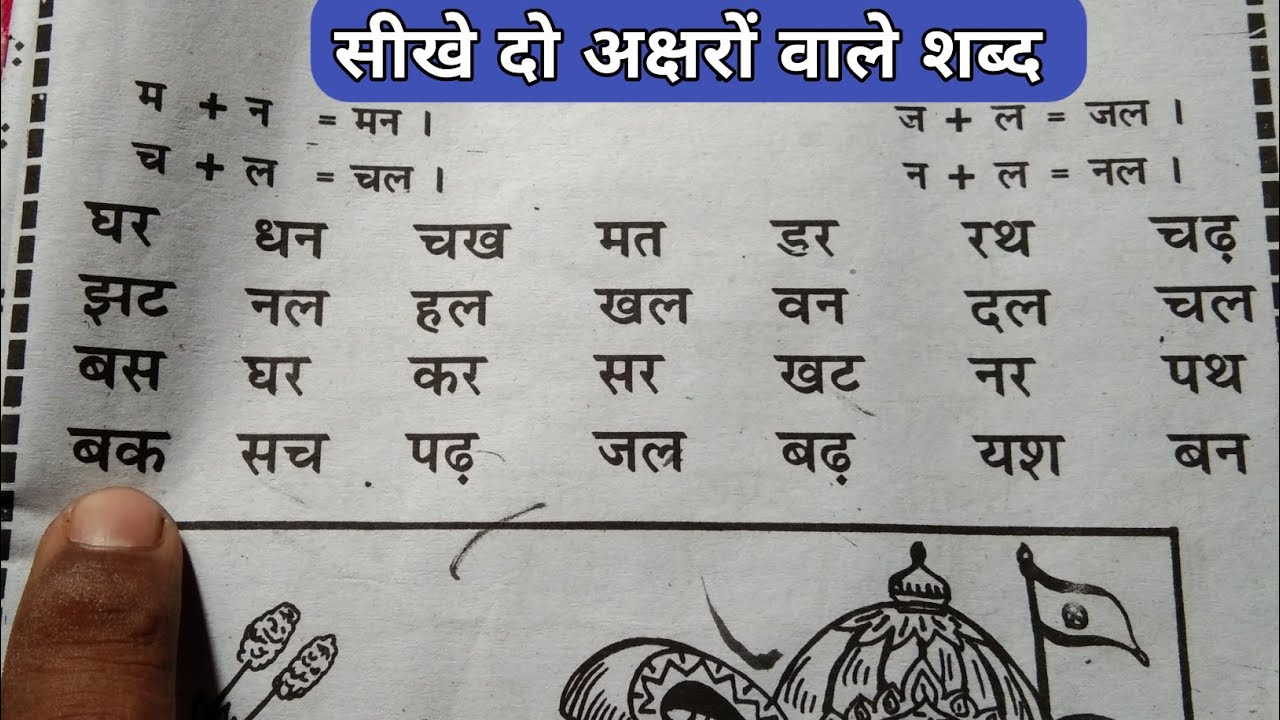 सीखे दो अक्षरों वाले शब्द
म + न = मन । ज + ल = जल ।
च + ल = चल । न + ल = नल ।
घर धन चख मत डर रथ चढ़
झट नल हल खल वन दल चल
बस घर कर सर खट नर पथ
बक सच पढ़ जल बढ़ यश बन